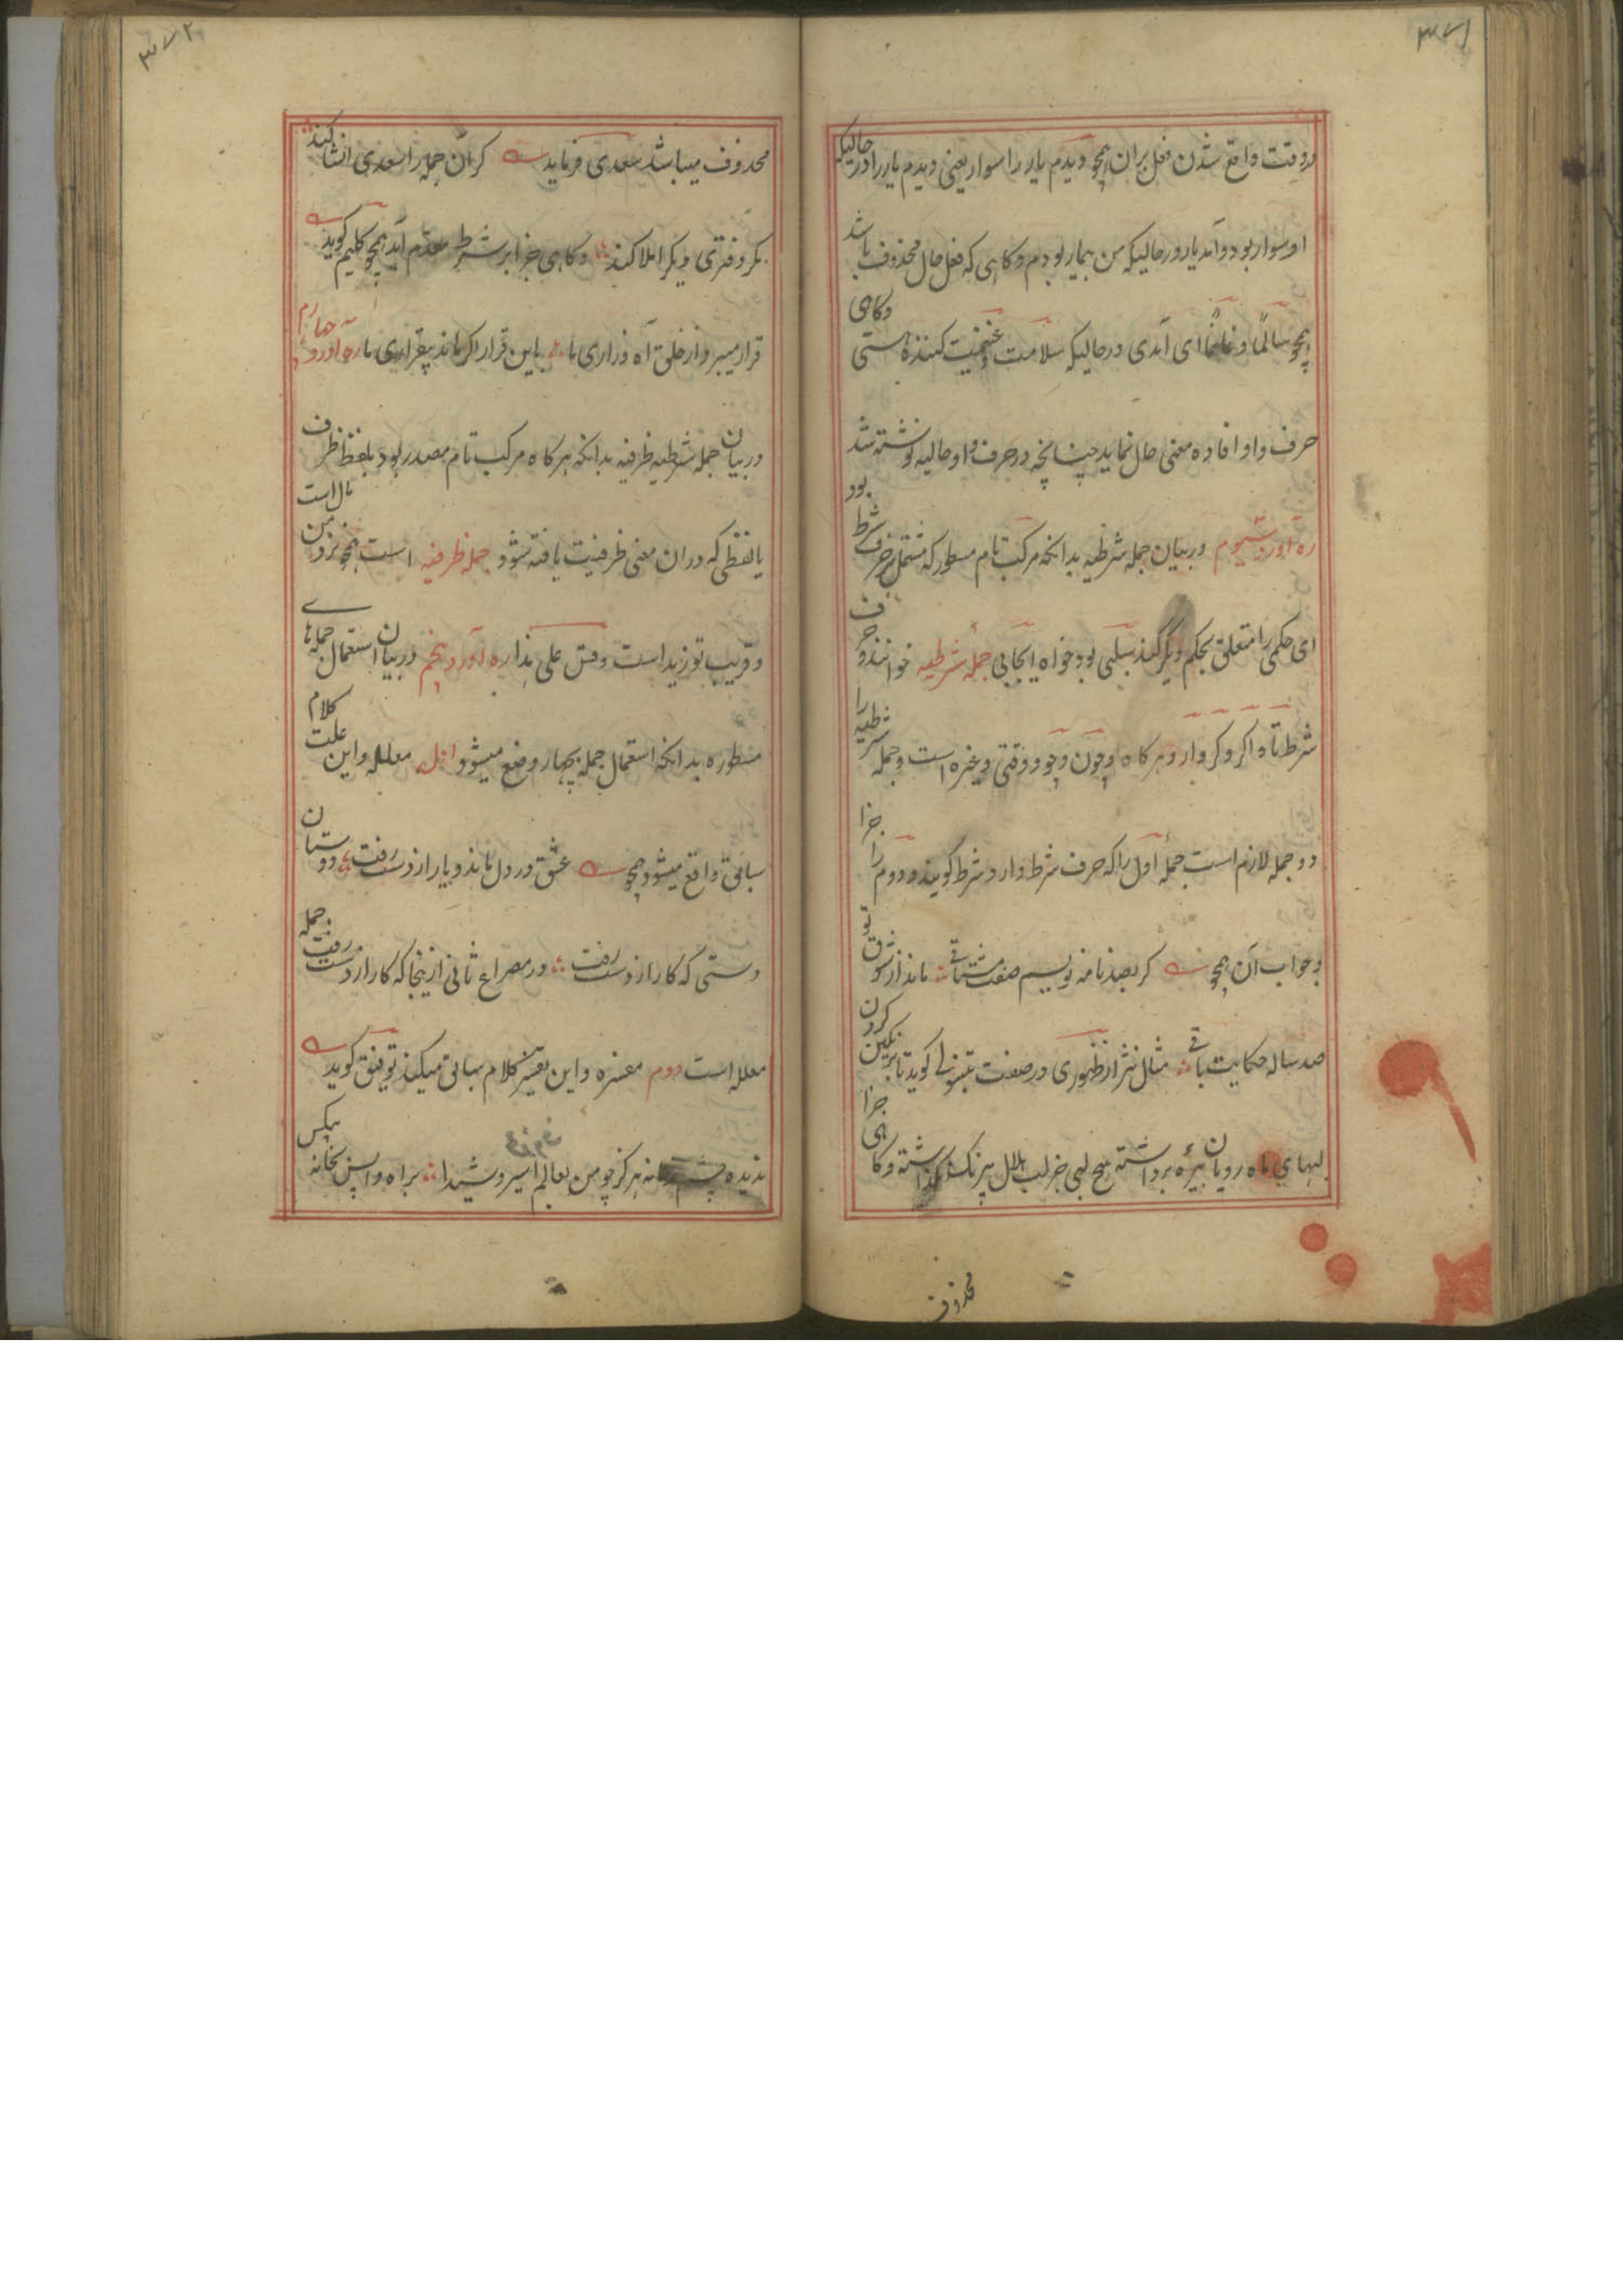 ۳۷۱
در وقت واقع شدن فعل بران همچو دیدم یار را سوار یعنی دیدم یار را در حالیکه
او سوار بود و آمد یار در حالیکه من بیمار بودم و کاهی که فعل حال محذوف باشد
همچو سالمًا و غانمًا ای آمدی در حالیکه سلامت و غنیمت کننده هستی و کاهی
حرف واو افاده معنی حال نماید چنانچه در حرف واو حالیه نوشته شد
ره آورد سیوم در بیان جمله شرطیه بدانکه مرکب تام مسطور که مشتمل بر حرف شرط بود
ای حکمی را متعلق بحکم دیگر کند سلبی بود خواه ایجابی جملهٔ شرطیه خوانند و حرف
شرط تا و اکر و کر و ار و هر کاه و چون و چو و وقتی و غیره است و جمله شرطیه را
دو جمله لازم است جملهٔ اول را که حرف شرط دارد شرط کویند و دوم را جزا
و جواب آن همچو کر بصد نامه نویسم صفت مشتاقی ماند از شوق تو
صد ساله حکایت باقی مثال نثر از ظهوری در صفت تبنبول کوید تا برنکین کردن
لبهای ماه رویان بیره برداشته هیچ لبی جز لب هلال بیرنک نکذاشته و کاهی جزا
محذوف
۳۷۲
محذوف میباشد سعدی فرماید کر آن جمله را سعدی انشا کند
مکر دفتری دیکر املا کند و کاهی جزا بر شرط مقدم آید همچو کلیم کوید
قرار میبرد از خلق آه و زاری ما باین قرار اکر ماند بیقراری ما ره آورد چهارم
در بیان جمله شرطیه ظرفیه بدانکه هر کاه مرکب تام مصدر بود بلفظ ظرف
یا لفظی که در ان معنی ظرفیت یافته شود جمله ظرفیه است همچو نزد من مال است
و قریب تو زید است وقس علی هذا ره آورد پنجم در بیان استعمال جملهای
مسطوره بدانکه استعمال جمله بچهار وضع میشود اول معلله و این علت کلام
سابق واقع میشود همچو عشق در دل ماند و یار از دست رفت دوستان
دستی که کار از دست رفت در مصراع ثانی از ینجا که کار از دست رفت جمله
معلله است دوم مفسره و این تفسیر کلام سابق میکند توفیق کوید
ندیده چشم زمانه هرکز چو من بعالم اسیر و شیدا براه واپس بخانه بیکس